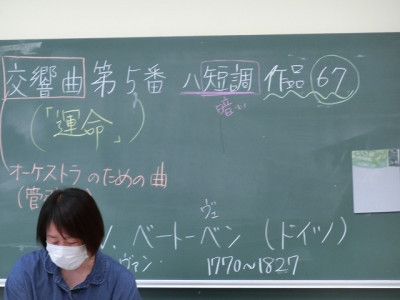 交響曲第5番 ハ短調 作品67
暗い
(「運命」)
オーケストラのための曲
(管
ヴェ
V. ベートーベン (ドイツ)
ヴァン 1770~1827